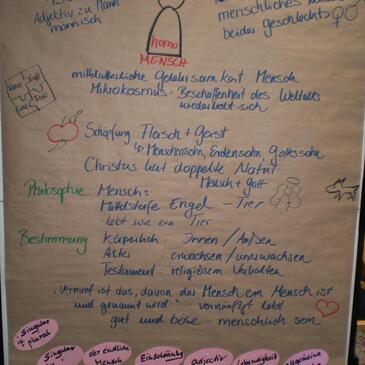 Adjektiv zu Mann
männisch
menschliches
beider geschlechts
homo
MENSCH
mittelalterliche Gelehrsamkeit: Mensch
Mikrokosmus = Beschaffenheit des Weltalls
wiederholt sich
Schöpfung: Fleisch + Geist
↳ Menschensohn, Erdensohn, Gottessohn
Christus hat doppelte Natur:
Mensch + gott
Philosophie: Mensch =
Mittelstufe Engel - Tier
- lebt wie ein Tier
Bestimmung: Körperlich: Innen / Außen
Alter: erwachsen / unerwachsen
Testament: religiösem Verhalten
"Vernunft ist das, davon der Mensch ein Mensch ist
und genannt wird" vernünftig lebt
gut und böse - menschlich sein
Singular
+ plural
Singular
der endliche
Mensch
Einschränkung
Adjektiv
Lebendigkeit
allgemeine